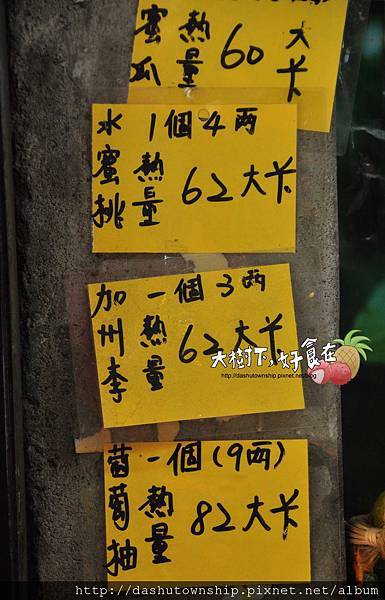 蜜瓜
熱量
60
大卡
水蜜桃
1個4兩
熱量
62大卡
加州李
一個3兩
熱量
62大卡
葡萄柚
一個(9兩)
熱量
82大卡
大樹下,好食在
http://dashutownship.pixnet.net/blog
http://dashutownship.pixnet.net/album